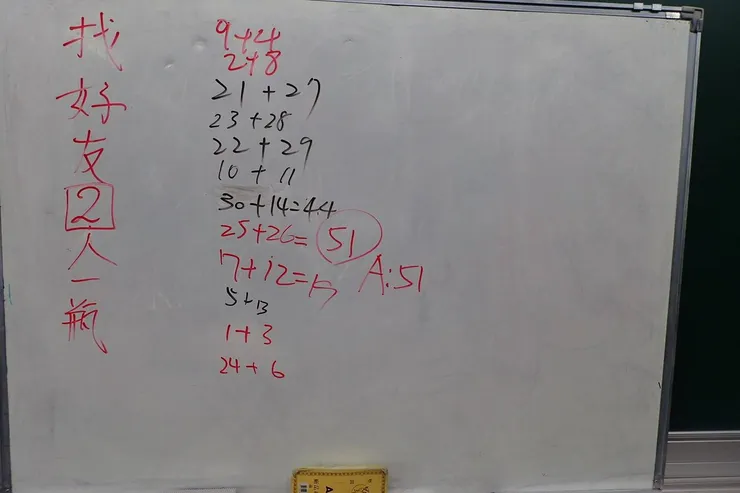 找好友2人一瓶
9+4
2+8
21+27
23+28
22+29
10+11
30+14=44
25+26=51
7+12=19
A:51
5+13
1+3
24+6